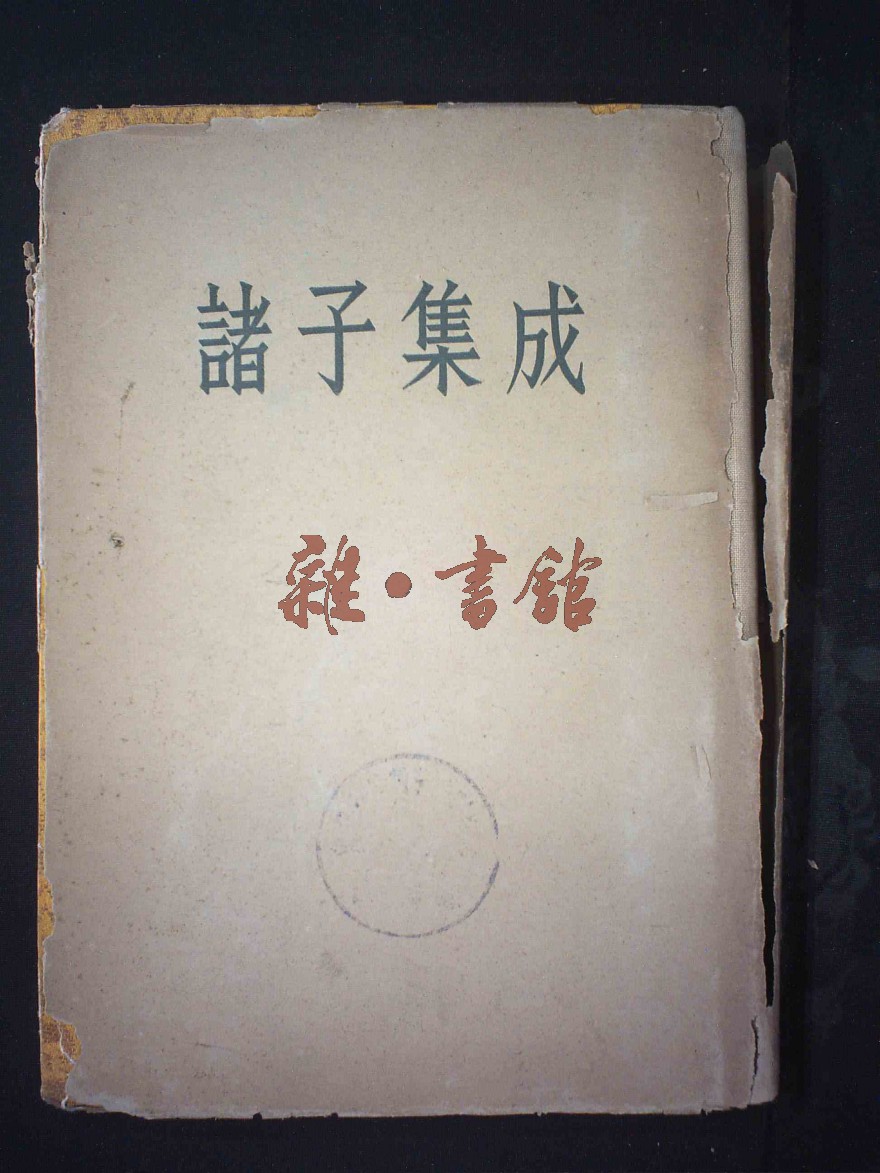 諸子集成
雜·書館